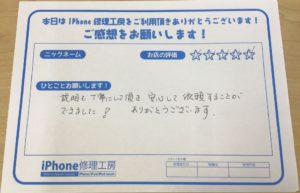 本日は iPhone 修理工房をご利用頂きありがとうございます!
ご感想をお願いします!
ニックネーム
お店の評価
☆☆☆☆☆
ひとことお願いします!
説明も丁寧にして頂き安心して依頼することが
できました! ありがとうございます。
iPhone修理工房